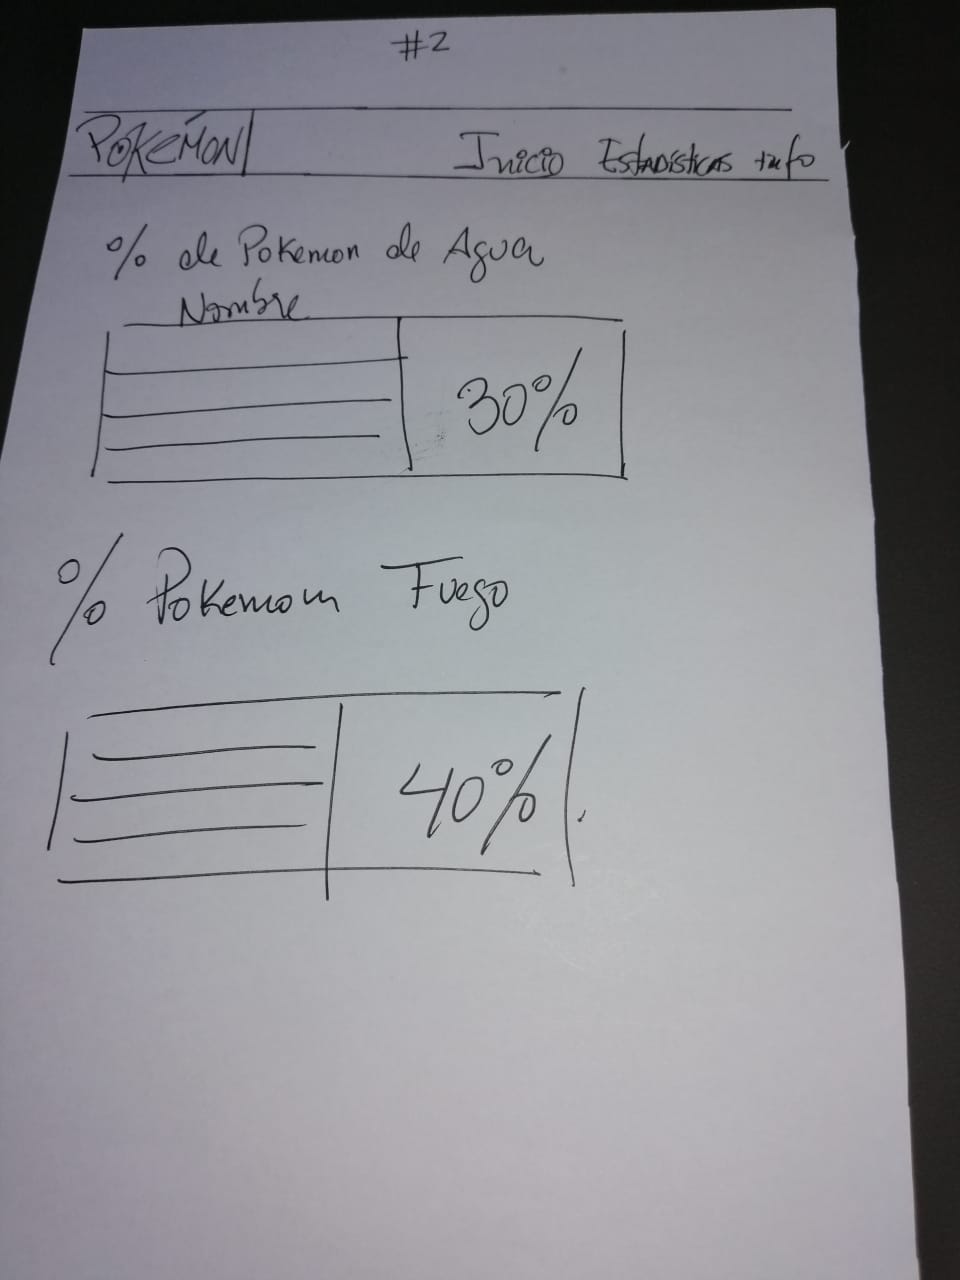 #2
POKEMON Inicio Estadísticas Info
% de Pokemon de Agua
Nombre
30%
% Pokemom Fuego
40%